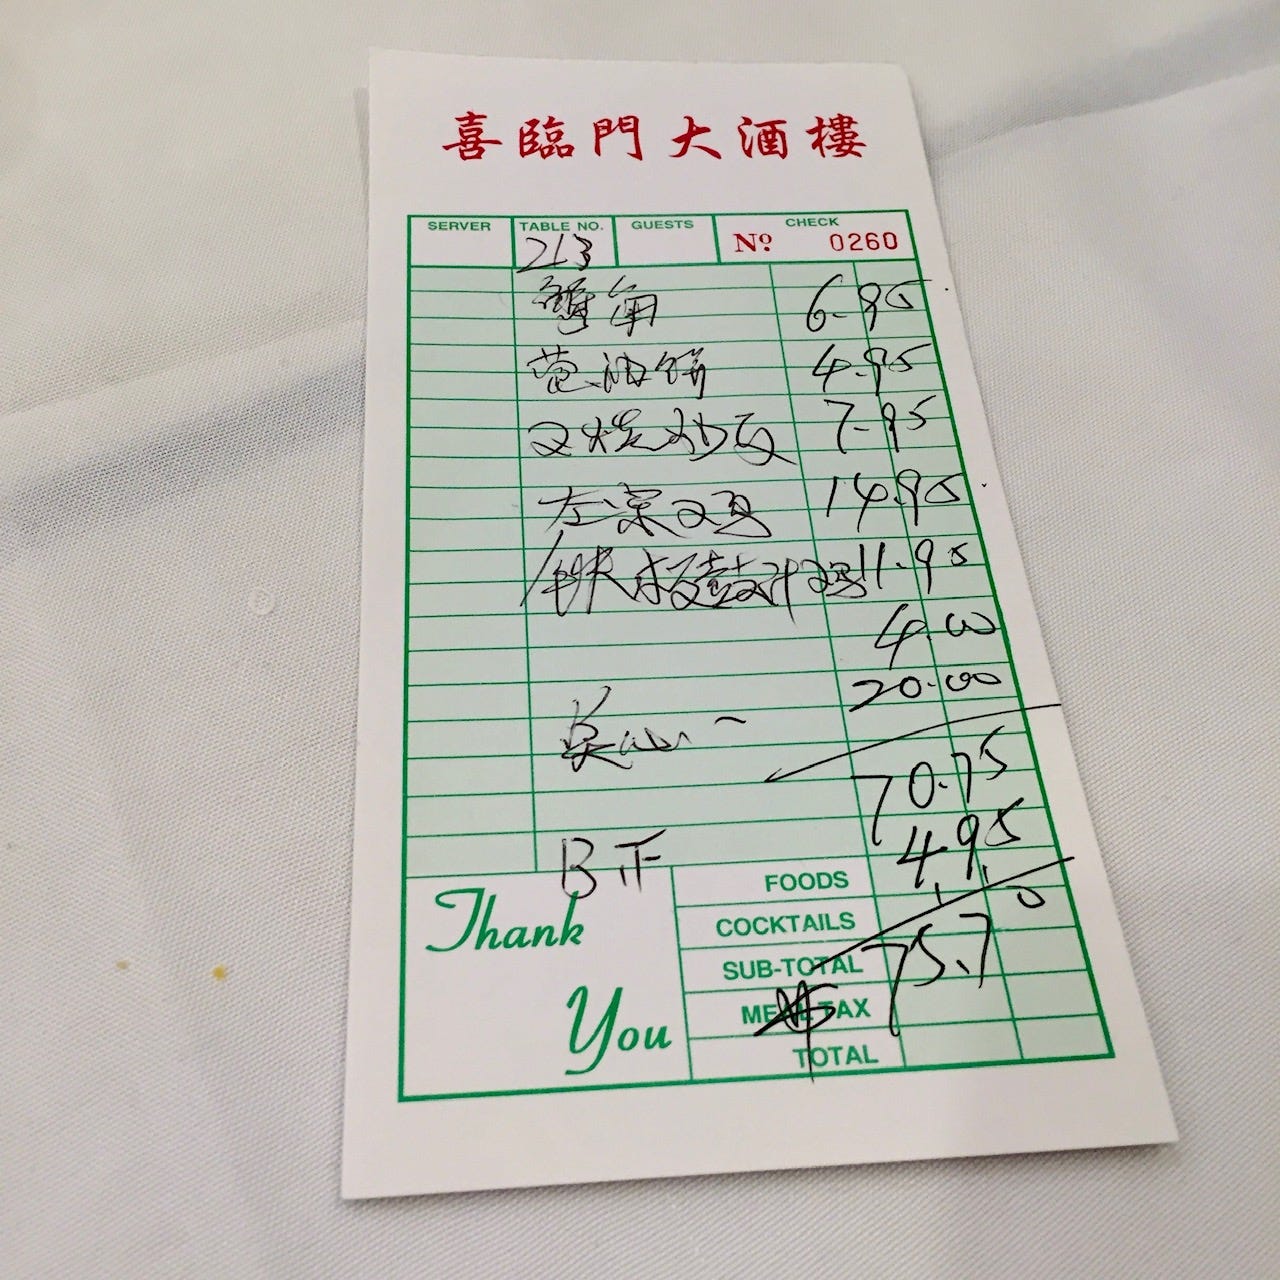 喜臨門大酒樓
SERVER TABLE NO. GUESTS CHECK
213 Nº 0260
蟹角 6.95
葱油餅 4.95
叉烧炒反 7.95
左宗鸡 14.95
铁板鼓汁鸡 11.95
4.00
20.00
70.75
4.95
B 正
FOODS
COCKTAILS
SUB-TOTAL 75.70
MEAL TAX
TOTAL
Thank
You